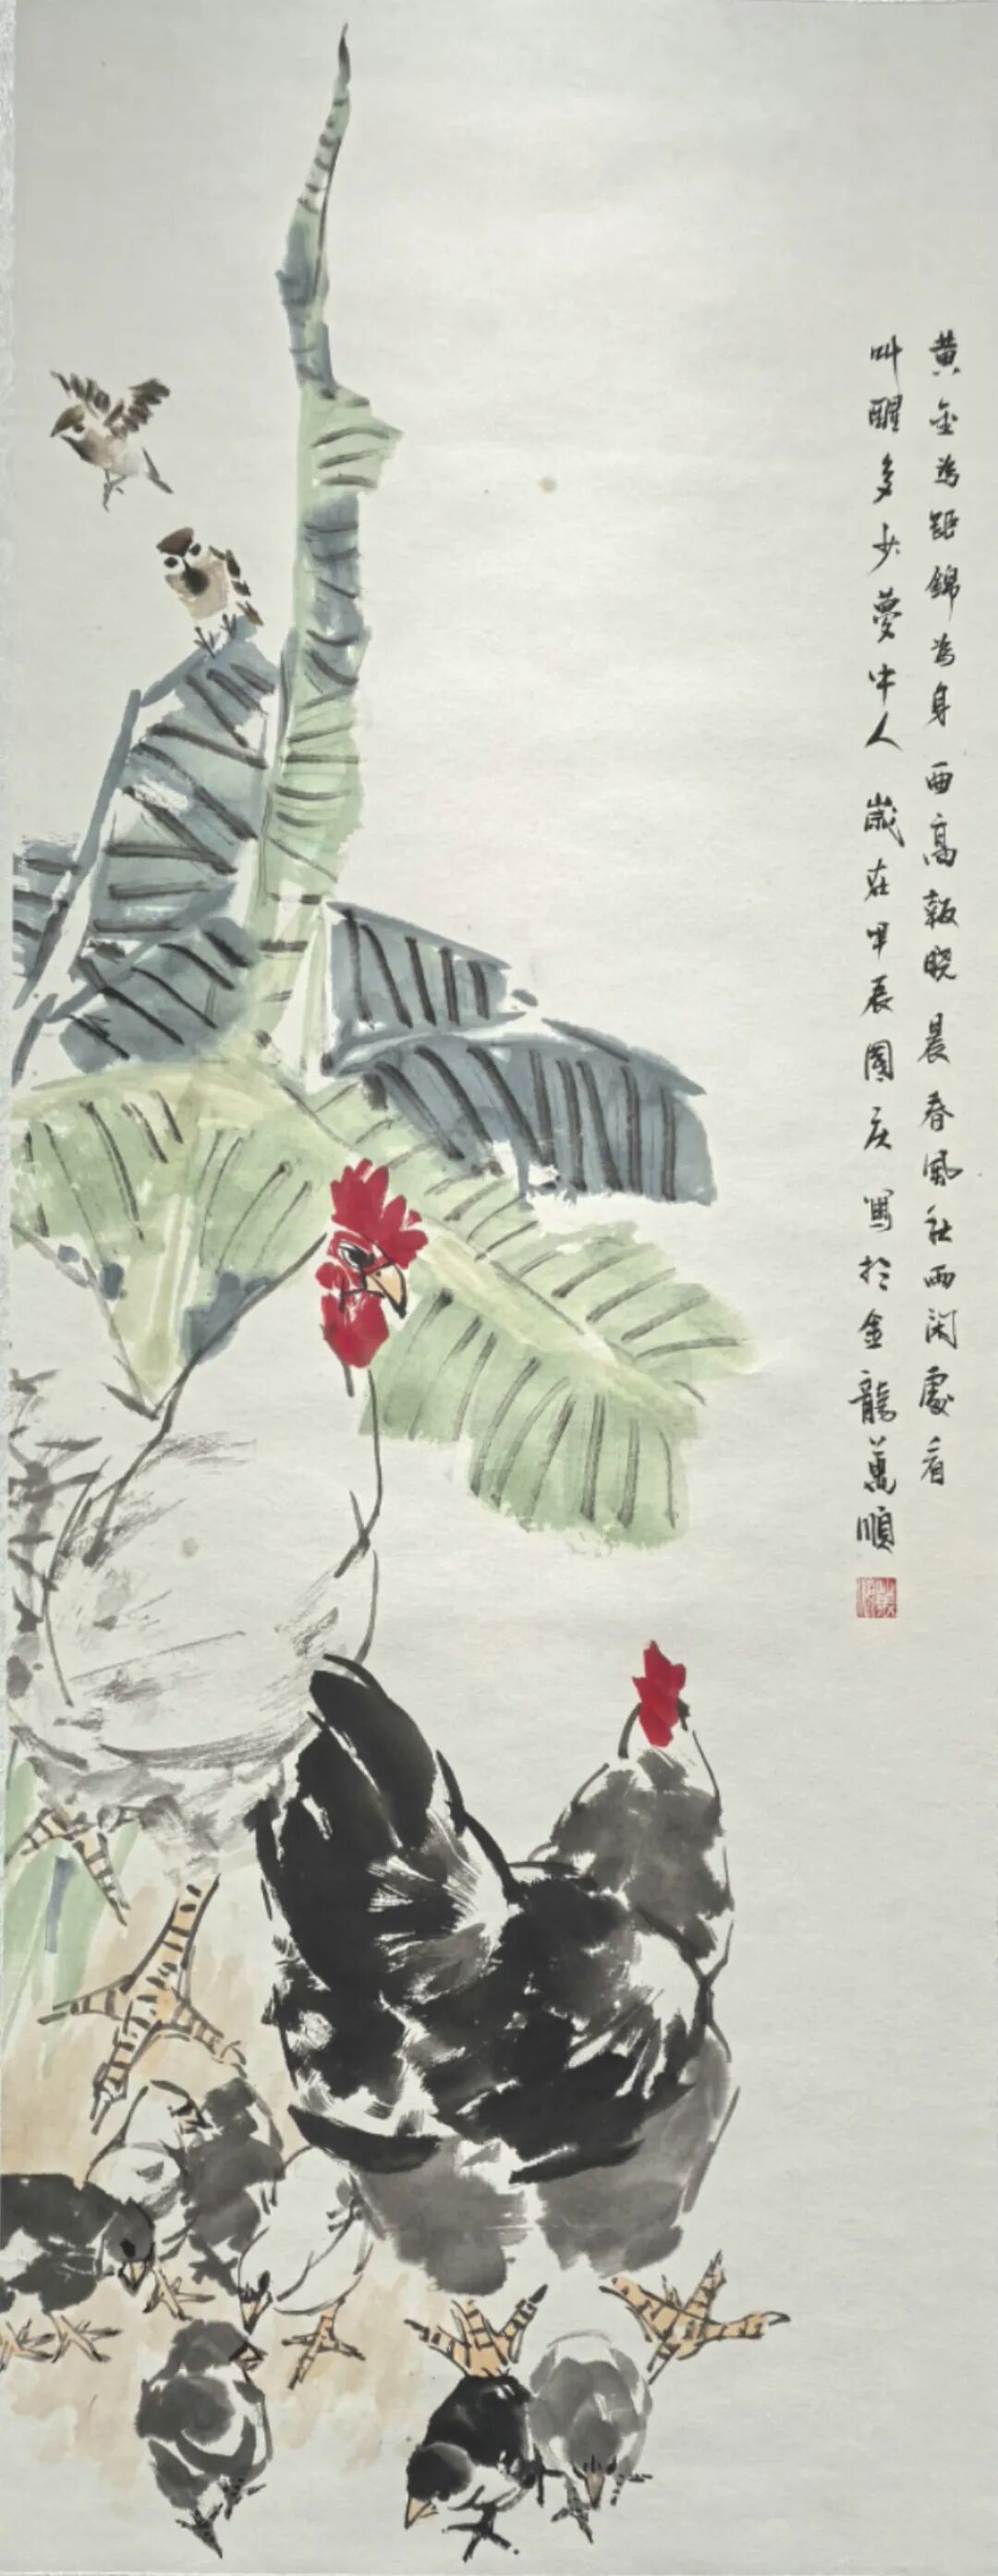 黄金為距錦為身西高報晓晨春風秋雨闲處看
叫醒多少夢中人歲在甲辰國庆寫於金龍萬順